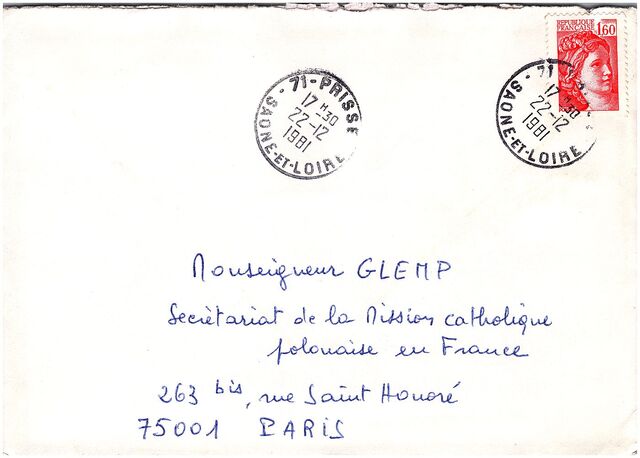 REPUBLIQUE
FRANCAISE 1,60
71-PRISSE
17 H 30
22-12
1981
SAONE-ET-LOIRE
71
17 H 30
22-12
1981
SAONE-ET-LOIRE
Monseigneur GLEMP
Secrétariat de la Mission catholique
polonaise en France
263 bis, rue Saint Honoré
75001 PARIS